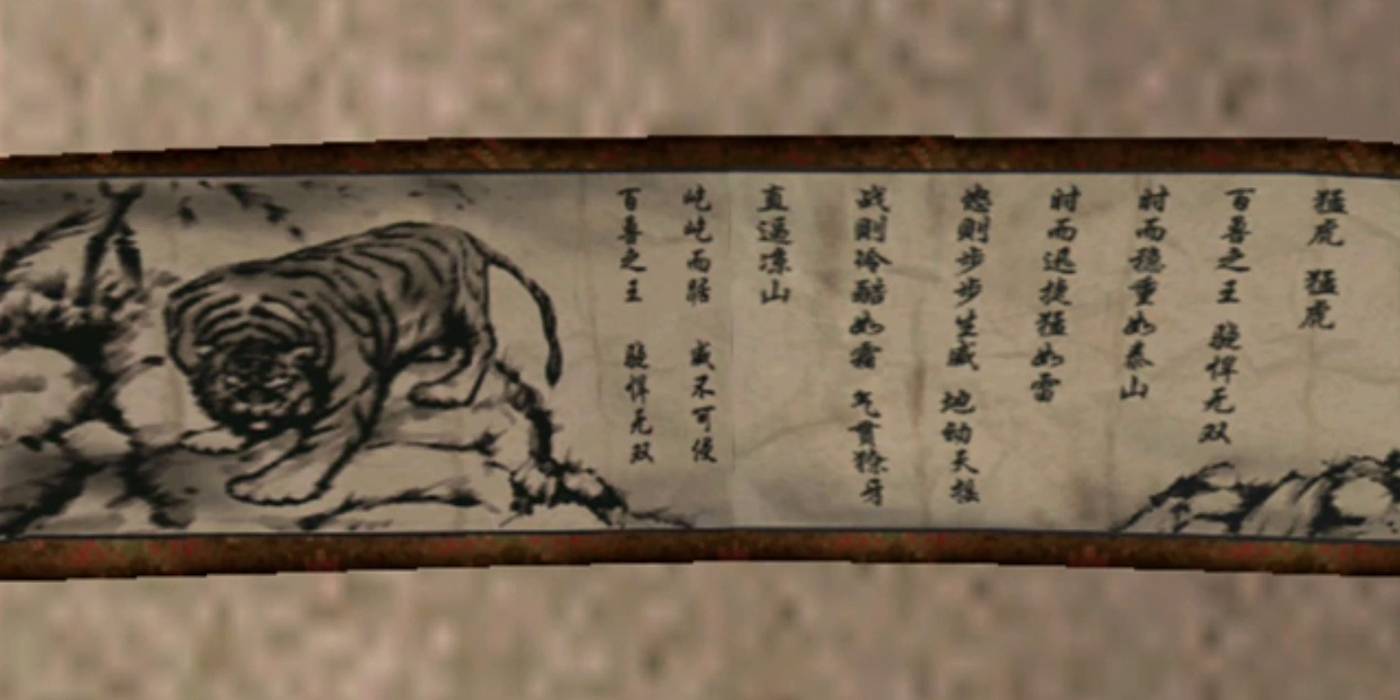 猛虎 猛虎
百兽之王 骁悍无双
时而稳重如泰山
时而迅捷猛如雷
怒則步步生威 地动天摇
战則冷酷如霜 气貫獠牙
直逼凉山
屹屹而踞 威不可侵
百兽之王 骁悍无双